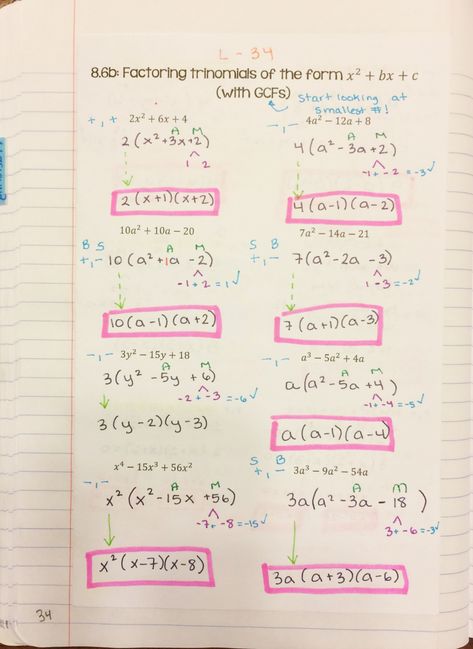 L - 34
8.6b: Factoring trinomials of the form x² + bx + c
(with GCFs)
start looking at
smallest #!
+ , +
2x² + 6x + 4
A M
2 (x² + 3x + 2)
1 2
2 (x+1)(x+2)
- , -
4a² - 12a + 8
A M
4 (a² - 3a + 2)
-1 + -2 = -3 ✓
4 (a-1)(a-2)
10a² + 10a - 20
B S
+ , -
A M
10 (a² + 1a - 2)
-1 + 2 = 1 ✓
10(a-1)(a+2)
7a² - 14a - 21
S B
+ , -
7(a² - 2a - 3)
1 -3 = -2 ✓
7 (a+1)(a-3)
- , -
3y² - 15y + 18
A M
3 (y² - 5y + 6)
-2 + -3 = -6 ✓
3 (y-2)(y-3)
- , -
a³ - 5a² + 4a
A M
a (a² - 5a + 4)
-1 + -4 = -5 ✓
a (a-1)(a-4)
x⁴ - 15x³ + 56x²
- , -
A M
x² (x² - 15x + 56)
-7 + -8 = -15 ✓
x² (x-7)(x-8)
S B
+ , -
3a³ - 9a² - 54a
A M
3a(a² - 3a - 18)
3 + -6 = -3 ✓
3a (a+3)(a-6)
34